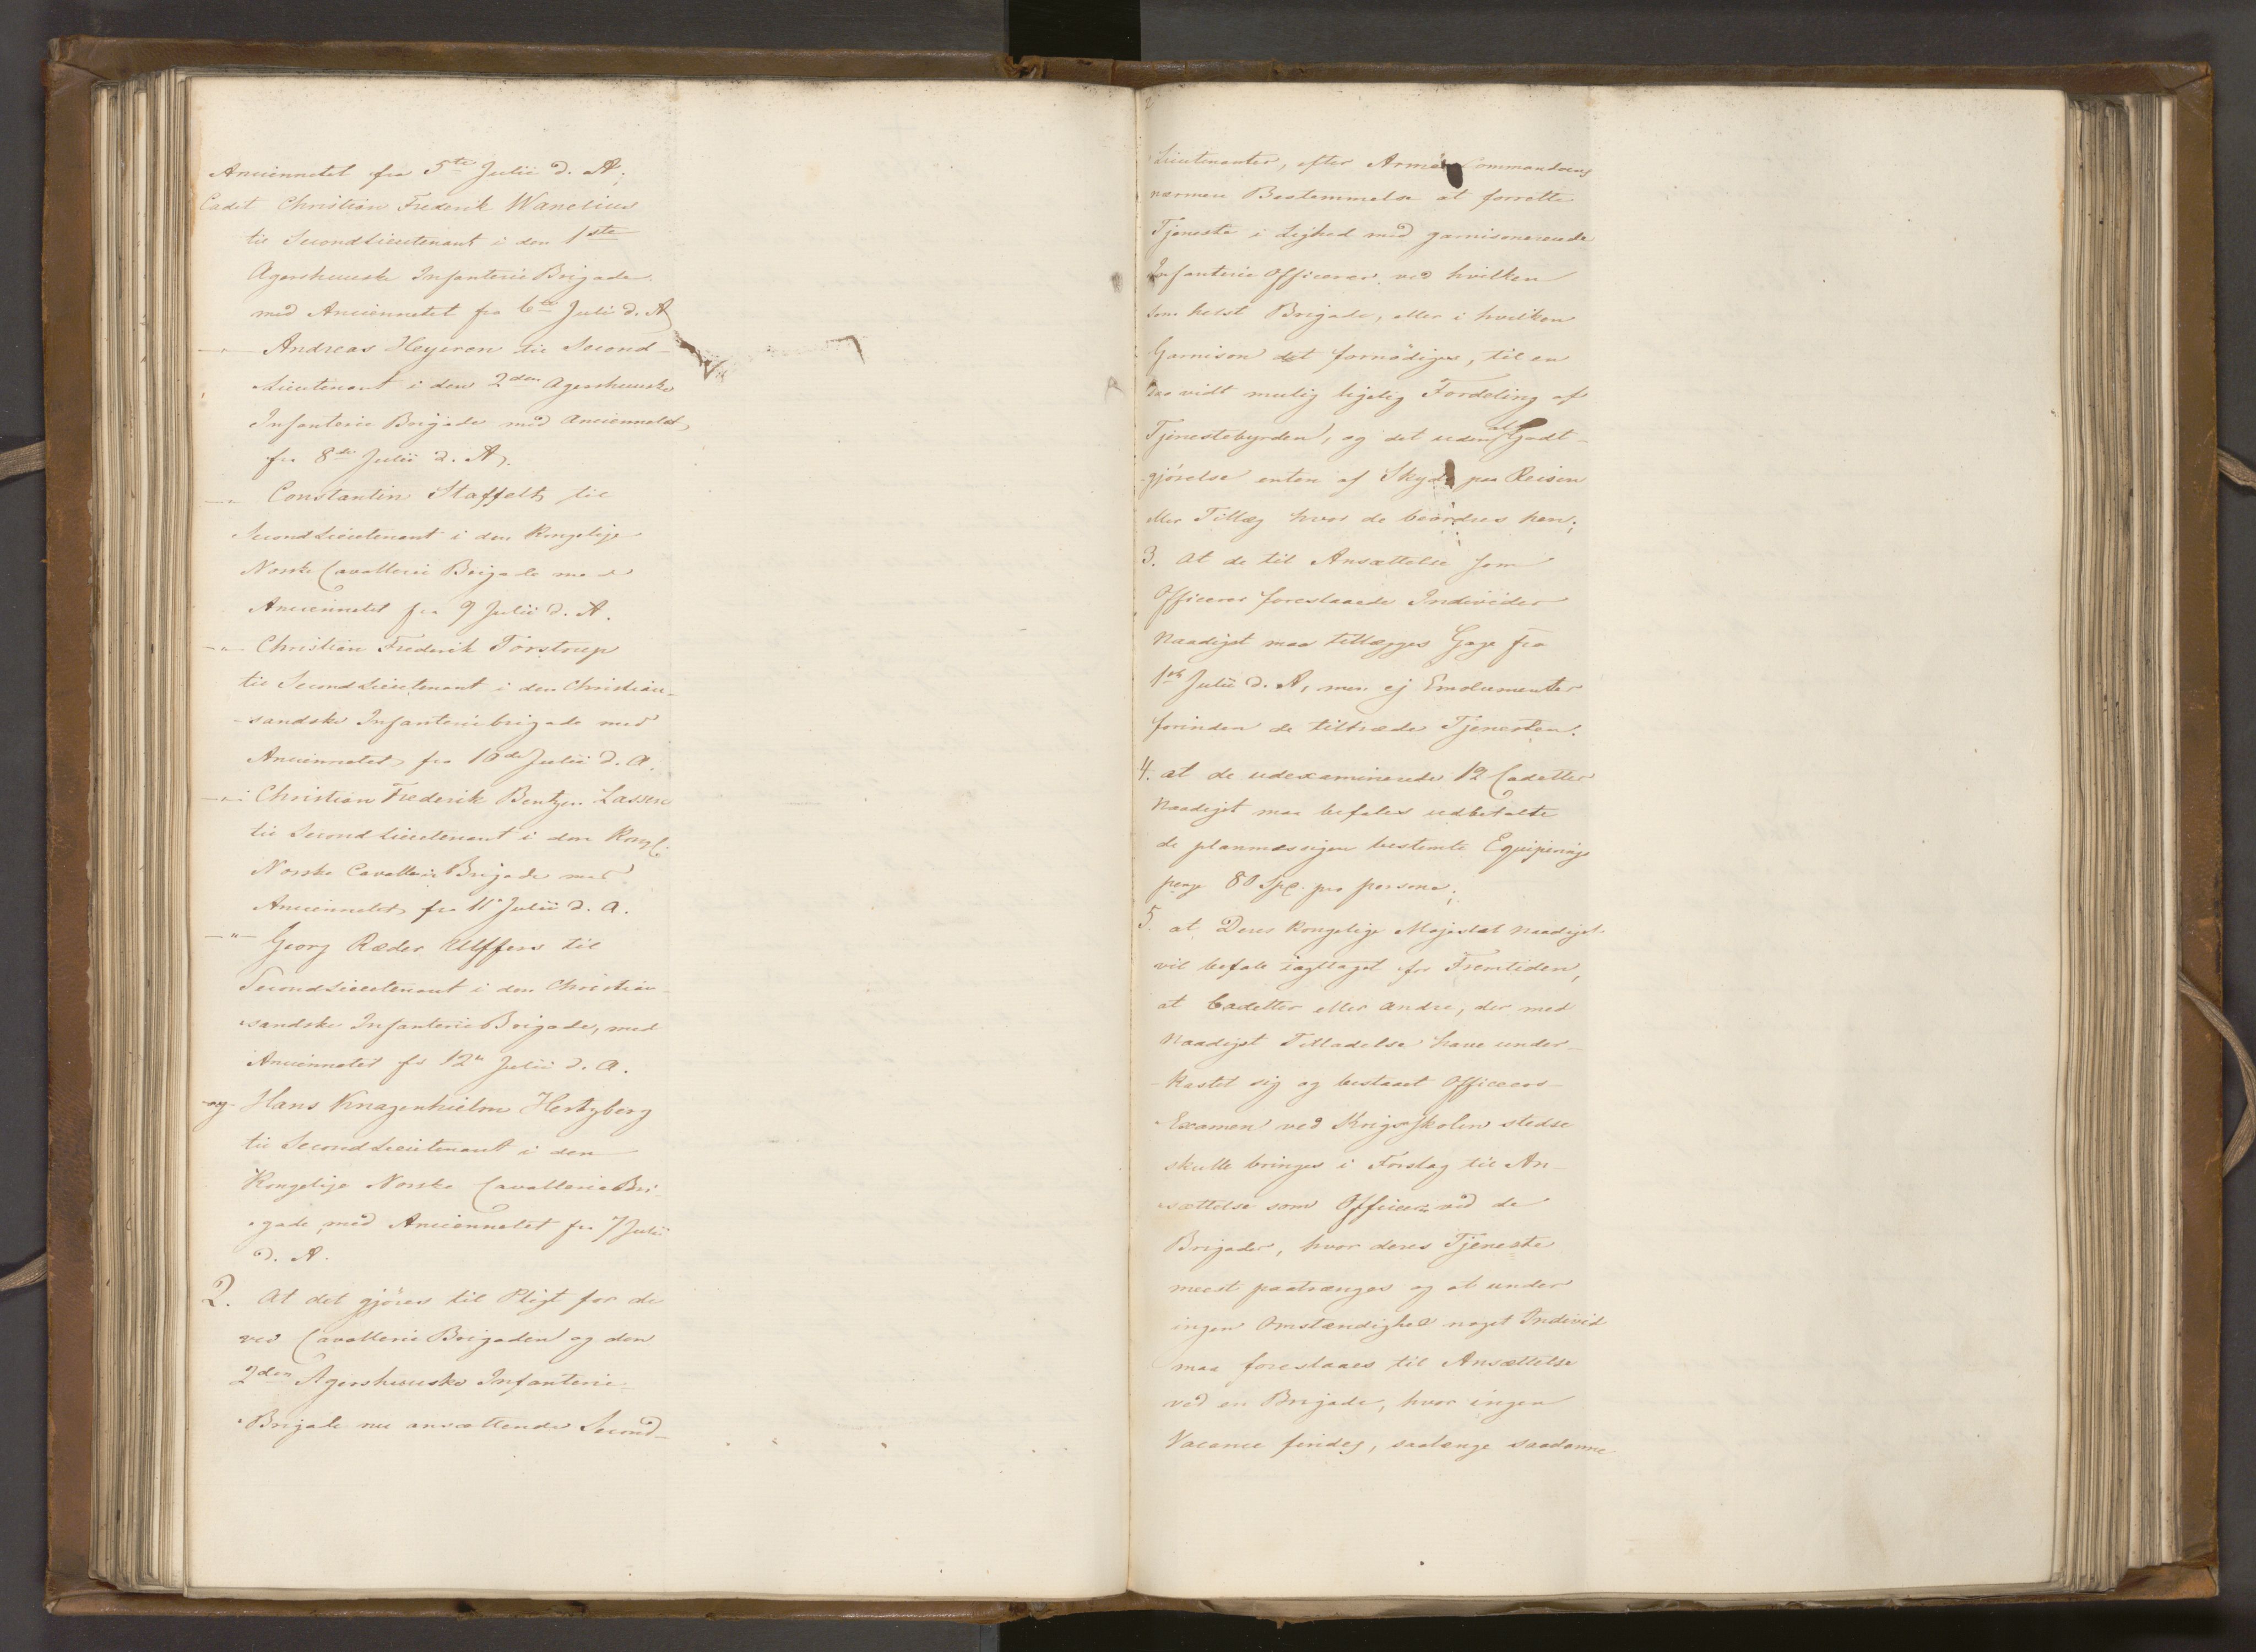 Anciennetet fra 5te Julii d. A;
Cadet Christian Frederik Wanelius
til SecondLieutenant i den 1ste
Agershuuske Infanterie Brigade
med Anciennetet fra 6te Julii d. A
—"— Andreas Heyeren til Second-
Lieutenant i den 2den Agershuuske
Infanterie Brigade med Anciennetet
fra 8de Julii d. A.
—"— Constantin Staffelt til
SecondLieutenant i den Kongelige
Norske Cavallerie Brigade med
Anciennetet fra 9 Julii d. A.
—"— Christian Frederik Torstrup
til SecondLieutenant i den Christian-
-sandske Infanteriebrigade med
Anciennetet fra 10de Julii d. A.
—"— Christian Frederik Bentzen Lassen
til SecondLieutenant i den Kongl.
Norske Cavallerie Brigade med
Anciennetet fra 11te Julii d. A.
—"— Georg Ræder Ulffers til
SecondLieutenant i den Christian-
-sandske Infanterie Brigade, med
Anciennetet fra 12te Julii d. A.
-og- Hans Knagenhielm Hertzberg
til SecondLieutenant i den
Kongelige Norske Cavallerie Bri-
-gade, med Anciennetet fra 7 Julii
d. A.
2. At det gjöres til Pligt for de
ved Cavallerie Brigaden og den
2den Agershuuske Infanterie-
Brigade nu ansættende Second-
Lieutenanter, efter Armee Commandoens
nærmere Bestemmelse at forrette
Tjeneste i Lighed med garnisonerende
Infanterie Officerer ved hvilken
som helst Brigade, eller i hvilken
Garnison det fornödiges, til en
saa vidt mulig ligelig Fordeling af
Tjenestebyrden, og det uden al Godt-
gjörelse enten af Skyds paa Reisen
eller Tillæg hvor de beordres hen;
3. At de til Ansættelse som
Officerer foreslaaede Individer
Naadigst maa tillægges Gage fra
1ste Julii d. A, men ej Emolumenter
forinden de tiltræde Tjenesten.
4. at de udexaminerede 12 Cadetter
Naadigst maa befales udbetalte
de planmæssigen bestemte Eqviperings
penge 80 Spd. pro persona;
5. at Deres Kongelige Majestæt Naadigst
vil befale iagttaget for Fremtiden,
at Cadetter eller andre, der med
Naadigst Tilladelse have under-
-kastet sig og bestaaet Officeers-
Examen ved Krigsskolen stedse
skulle bringes i Forslag til An-
sættelse som Officerer ved de
Brigader, hvor deres Tjeneste
meest paatrænges og at under
ingen Omstændighed noget Individ
maa foreslaaes til Ansættelse
ved en Brigade, hvor ingen
Vacance findes, saalænge saadanne